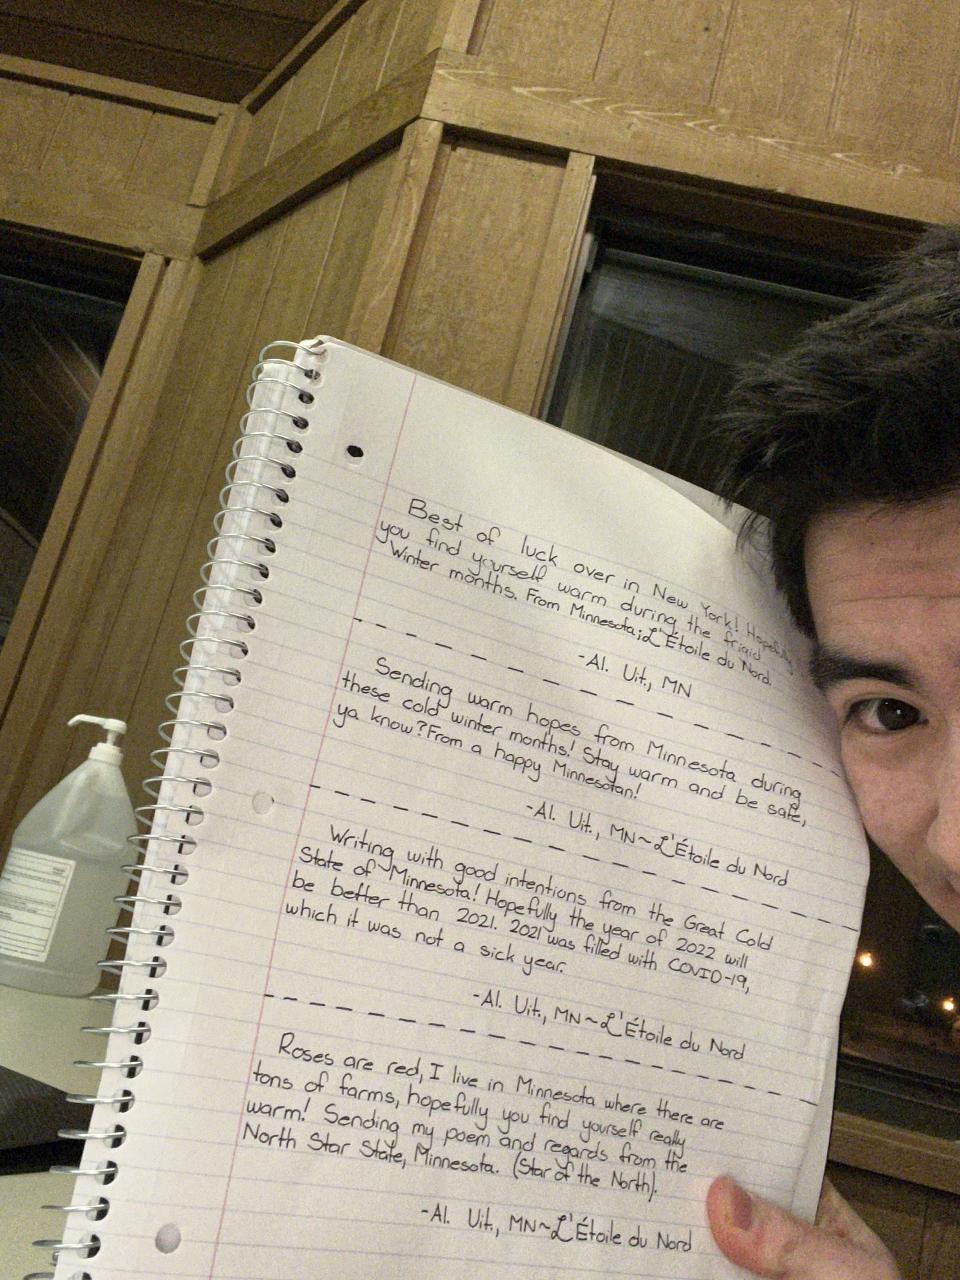 Best of luck over in New York! Hopefully
you find yourself warm during the frigid
Winter months. From Minnesota; L'Étoile du Nord.
-Al. Uit., MN
Sending warm hopes from Minnesota during
these cold winter months! Stay warm and be safe,
ya know? From a happy Minnesotan!
-Al. Uit., MN~L'Étoile du Nord
Writing with good intentions from the Great Cold
State of Minnesota! Hopefully the year of 2022 will
be better than 2021. 2021 was filled with COVID-19,
which it was not a sick year.
-Al. Uit., MN~L'Étoile du Nord
Roses are red, I live in Minnesota where there are
tons of farms, hopefully you find yourself really
warm! Sending my poem and regards from the
North Star State, Minnesota. (Star of the North).
-Al. Uit., MN~L'Étoile du Nord